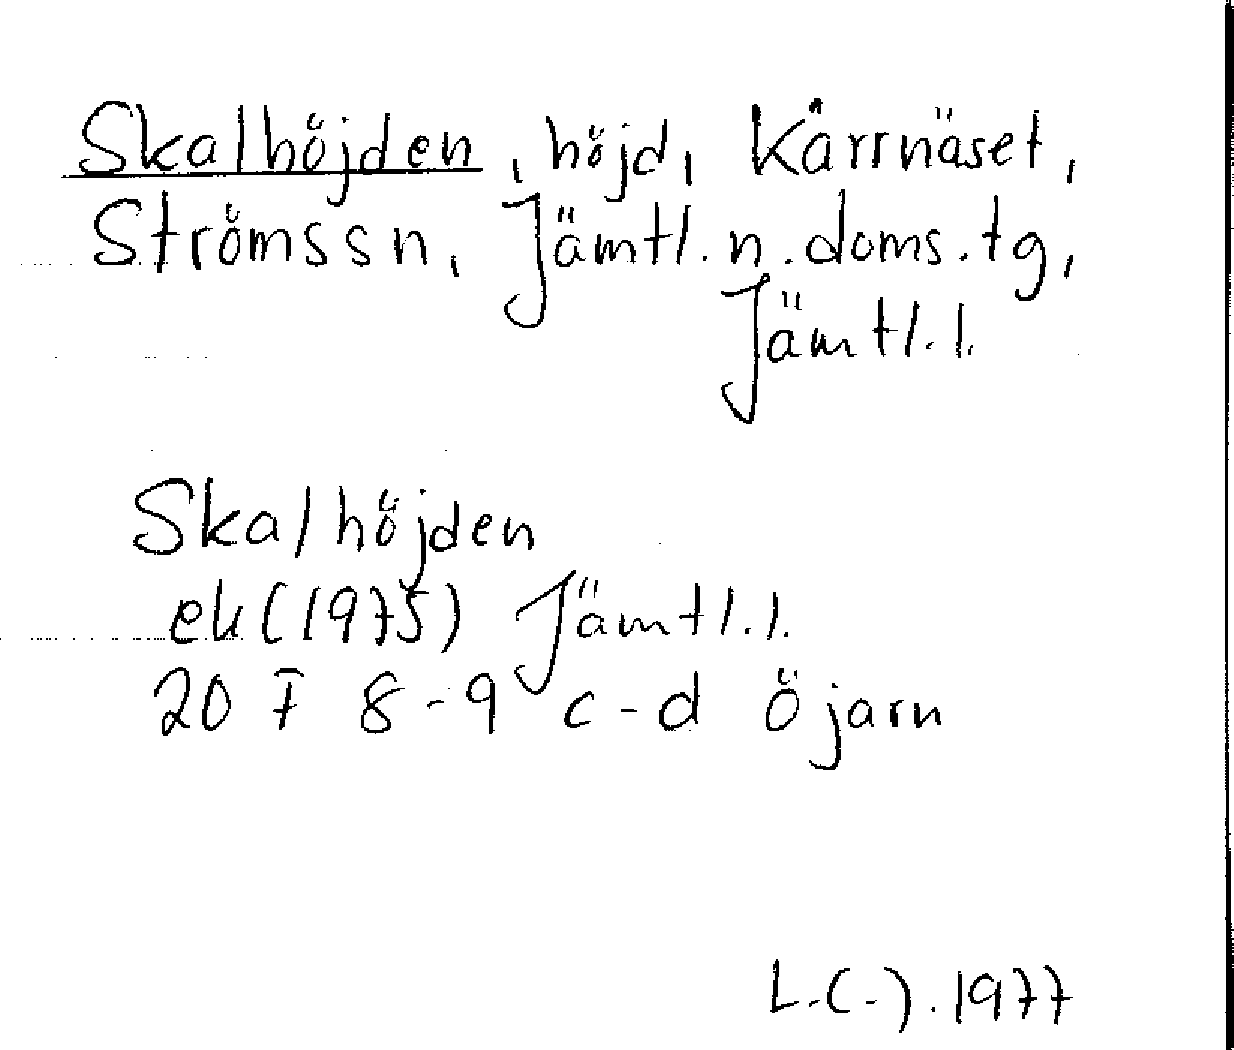 Skalhöjden, höjd, Kårrnäset,
Strömssn, Jämtl.n.doms.tg,
Jämtl.l.
Skalhöjden
ek(1975) Jämtl.l.
20 F 8-9 c-d Öjarn
L.(-).1977